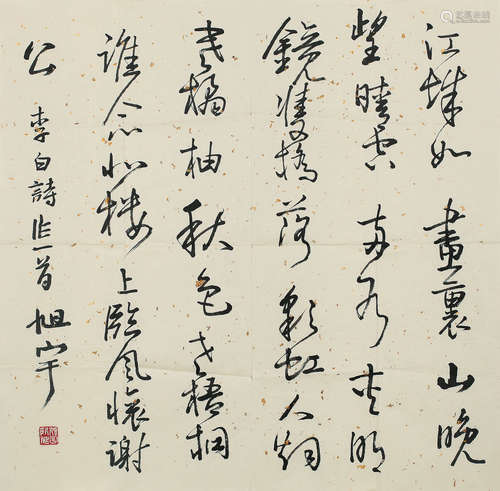 江城如畫裏山晚
望晴空兩水夾明
鏡雙橋落彩虹人烟
寒橘柚秋色老梧桐
誰念北樓上臨風懷謝
公 李白詩作一首 旭宇